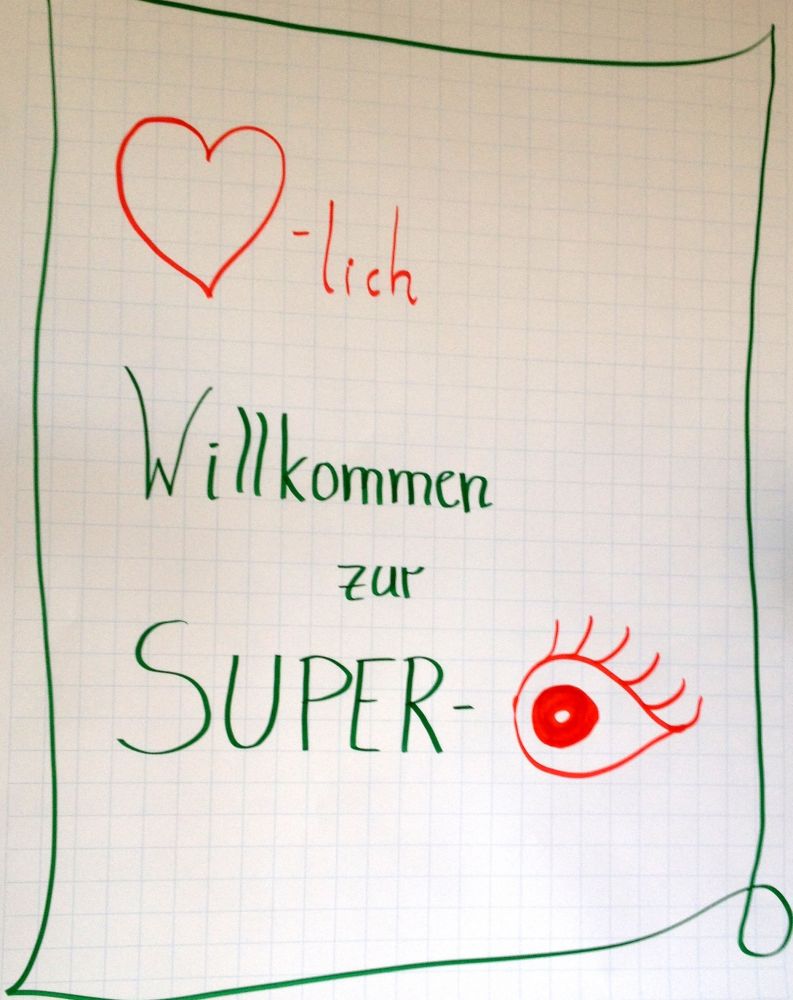 -lich
Willkommen
zur
SUPER-